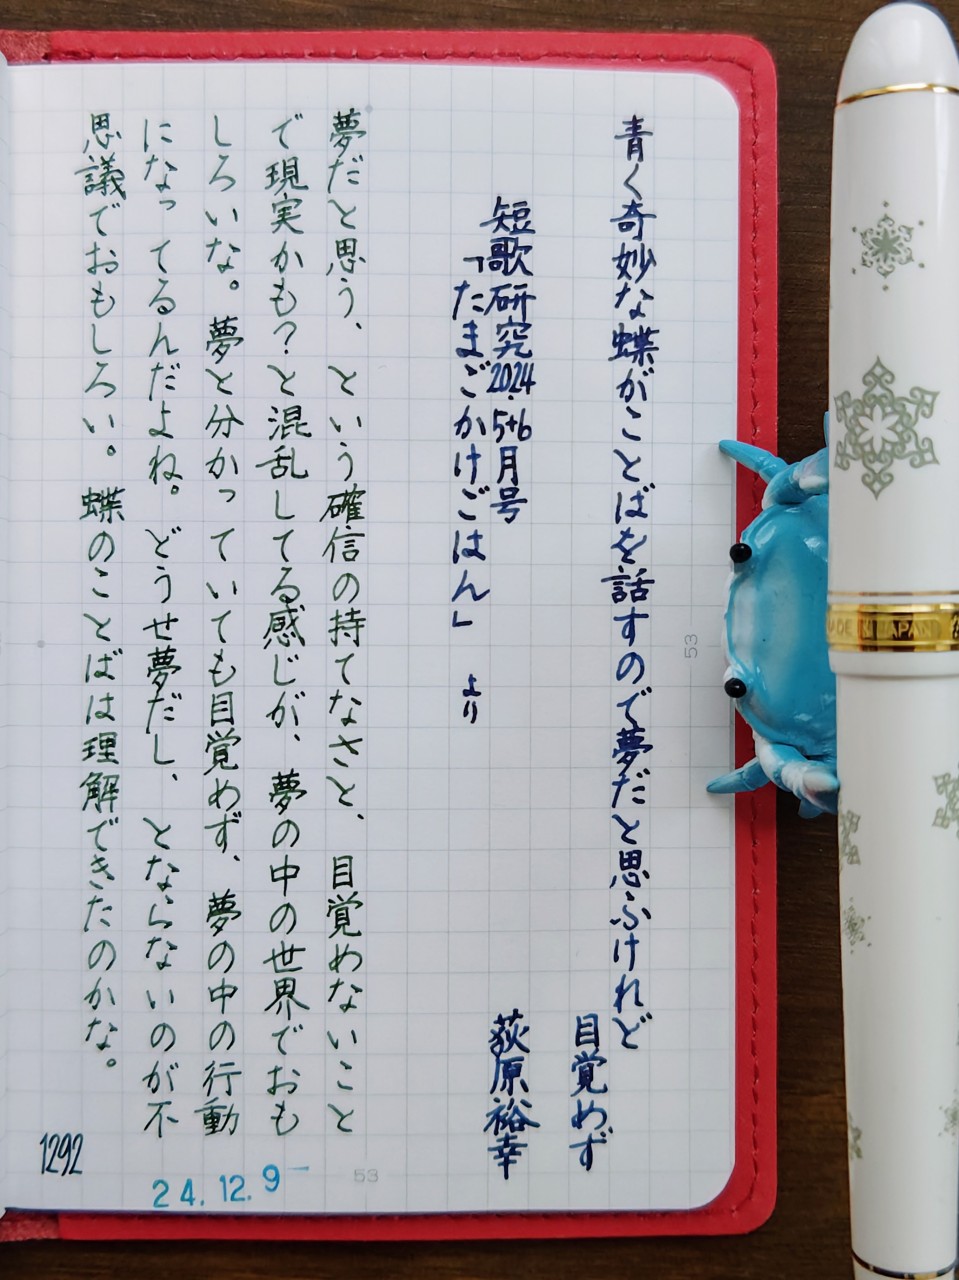 青く奇妙な蝶がことばを話すので夢だと思ふけれど
目覚めず
短歌研究2024.5+6月号
荻原裕幸
「たまごかけごはん」 より
夢だと思う、という確信の持てなさと、目覚めないこと
で現実かも?と混乱してる感じが、夢の中の世界でおも
しろいな。夢と分かっていても目覚めず、夢の中の行動
になってるんだよね。どうせ夢だし、とならないのが不
思議でおもしろい。蝶のことばは理解できたのかな。
1292
24.12.9
53
53
JAPAN